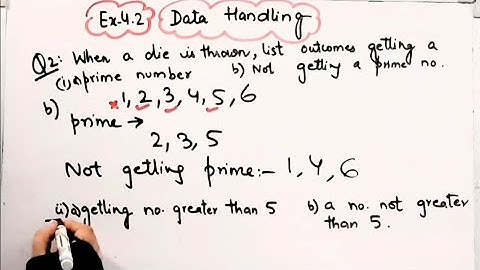 Ex-4.2 Data Handling
Q2: When a die is thrown, list outcomes getting a
(i) a) prime number b) Not getting a prime no.
b) 1, 2, 3, 4, 5, 6
prime →
2, 3, 5
Not getting prime:- 1, 4, 6
(ii) a) getting no. greater than 5 b) a no. not greater
than 5.